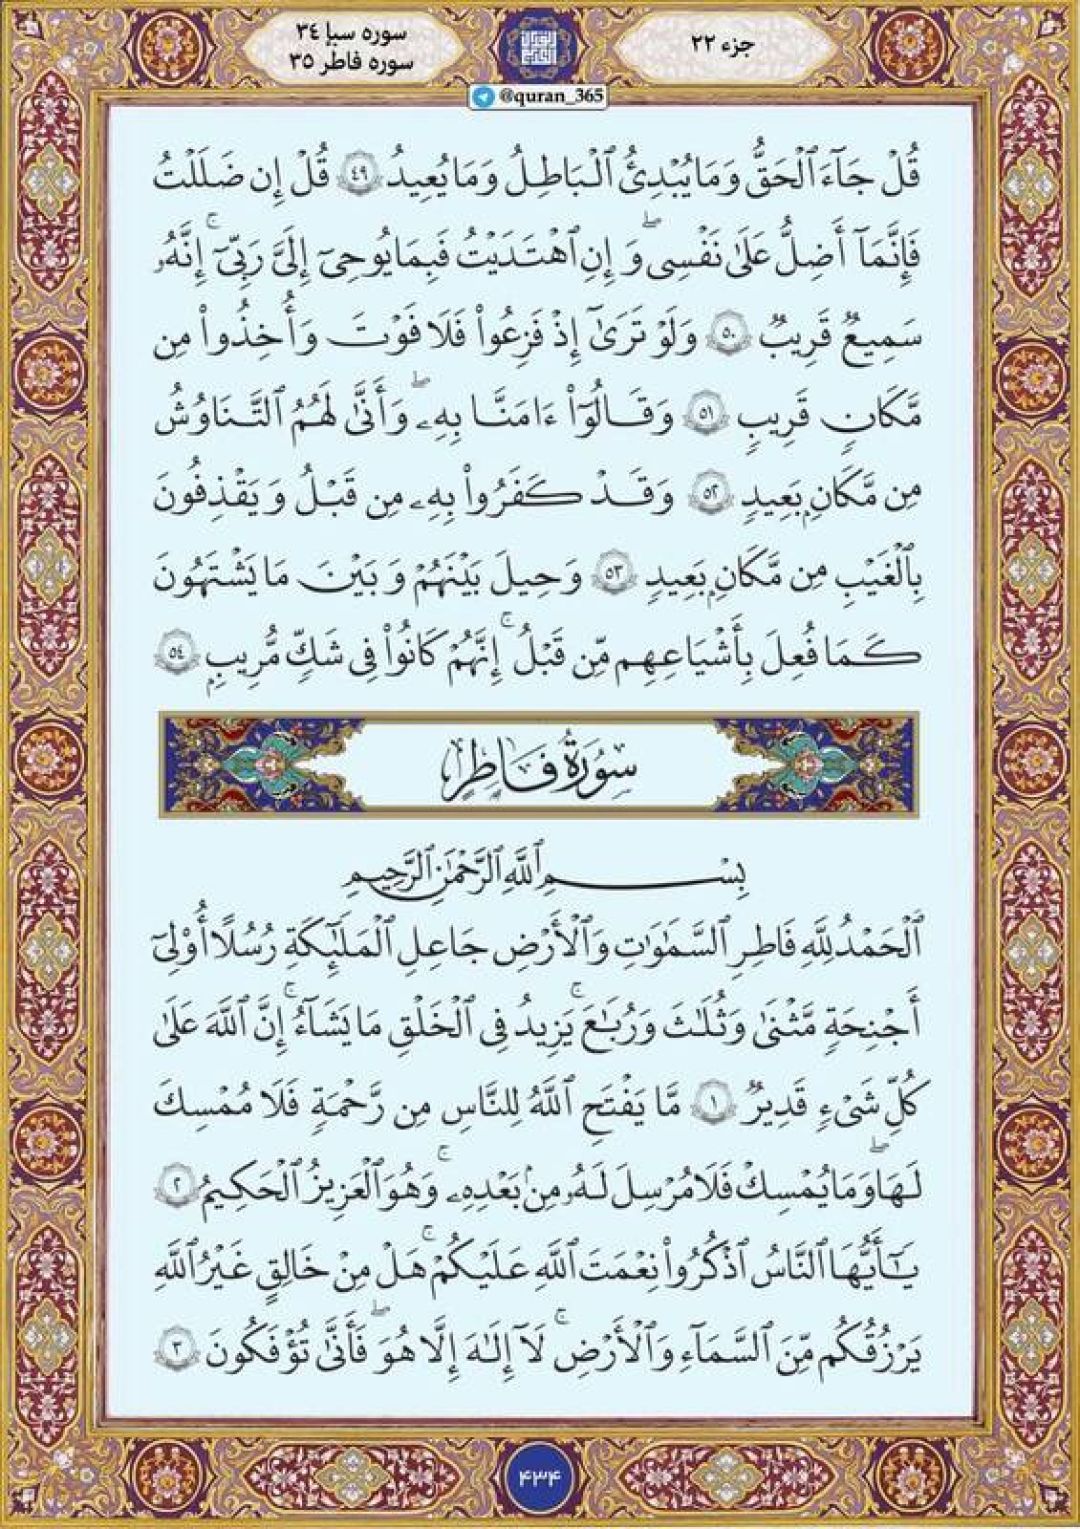 سوره سبإ ٣٤
سوره فاطر ٣٥
جزء ٢٢
@quran_365
قُلْ جَآءَ ٱلْحَقُّ وَمَا يُبْدِئُ ٱلْبَاطِلُ وَمَا يُعِيدُ ٤٩ قُلْ إِن ضَلَلْتُ
فَإِنَّمَآ أَضِلُّ عَلَىٰ نَفْسِىۖ وَإِنِ ٱهْتَدَيْتُ فَبِمَا يُوحِىٓ إِلَىَّ رَبِّىٓۚ إِنَّهُۥ
سَمِيعٌ قَرِيبٌ ٥٠ وَلَوْ تَرَىٰٓ إِذْ فَزِعُوا۟ فَلَا فَوْتَ وَأُخِذُوا۟ مِن
مَّكَانٍ قَرِيبٍ ٥١ وَقَالُوٓا۟ ءَامَنَّا بِهِۦۖ وَأَنَّىٰ لَهُمُ ٱلتَّنَاوُشُ
مِن مَّكَانٍۭ بَعِيدٍ ٥٢ وَقَدْ كَفَرُوا۟ بِهِۦ مِن قَبْلُ وَيَقْذِفُونَ
بِٱلْغَيْبِ مِن مَّكَانٍۭ بَعِيدٍ ٥٣ وَحِيلَ بَيْنَهُمْ وَبَيْنَ مَا يَشْتَهُونَ
كَمَا فُعِلَ بِأَشْيَاعِهِم مِّن قَبْلُۚ إِنَّهُمْ كَانُوا۟ فِى شَكٍّ مُّرِيبٍۭ ٥٤
سُورَةُ فَاطِرٍ
بِسْمِ ٱللَّهِ ٱلرَّحْمَٰنِ ٱلرَّحِيمِ
ٱلْحَمْدُ لِلَّهِ فَاطِرِ ٱلسَّمَٰوَٰتِ وَٱلْأَرْضِ جَاعِلِ ٱلْمَلَٰٓئِكَةِ رُسُلًا أُو۟لِىٓ
أَجْنِحَةٍ مَّثْنَىٰ وَثُلَٰثَ وَرُبَٰعَۚ يَزِيدُ فِى ٱلْخَلْقِ مَا يَشَآءُۚ إِنَّ ٱللَّهَ عَلَىٰ
كُلِّ شَىْءٍ قَدِيرٌ ١ مَّا يَفْتَحِ ٱللَّهُ لِلنَّاسِ مِن رَّحْمَةٍ فَلَا مُمْسِكَ
لَهَاۖ وَمَا يُمْسِكْ فَلَا مُرْسِلَ لَهُۥ مِنۢ بَعْدِهِۦۚ وَهُوَ ٱلْعَزِيزُ ٱلْحَكِيمُ ٢
يَٰٓأَيُّهَا ٱلنَّاسُ ٱذْكُرُوا۟ نِعْمَتَ ٱللَّهِ عَلَيْكُمْۚ هَلْ مِنْ خَٰلِقٍ غَيْرُ ٱللَّهِ
يَرْزُقُكُم مِّنَ ٱلسَّمَآءِ وَٱلْأَرْضِۚ لَآ إِلَٰهَ إِلَّا هُوَۖ فَأَنَّىٰ تُؤْفَكُونَ ٣
۴۳۴